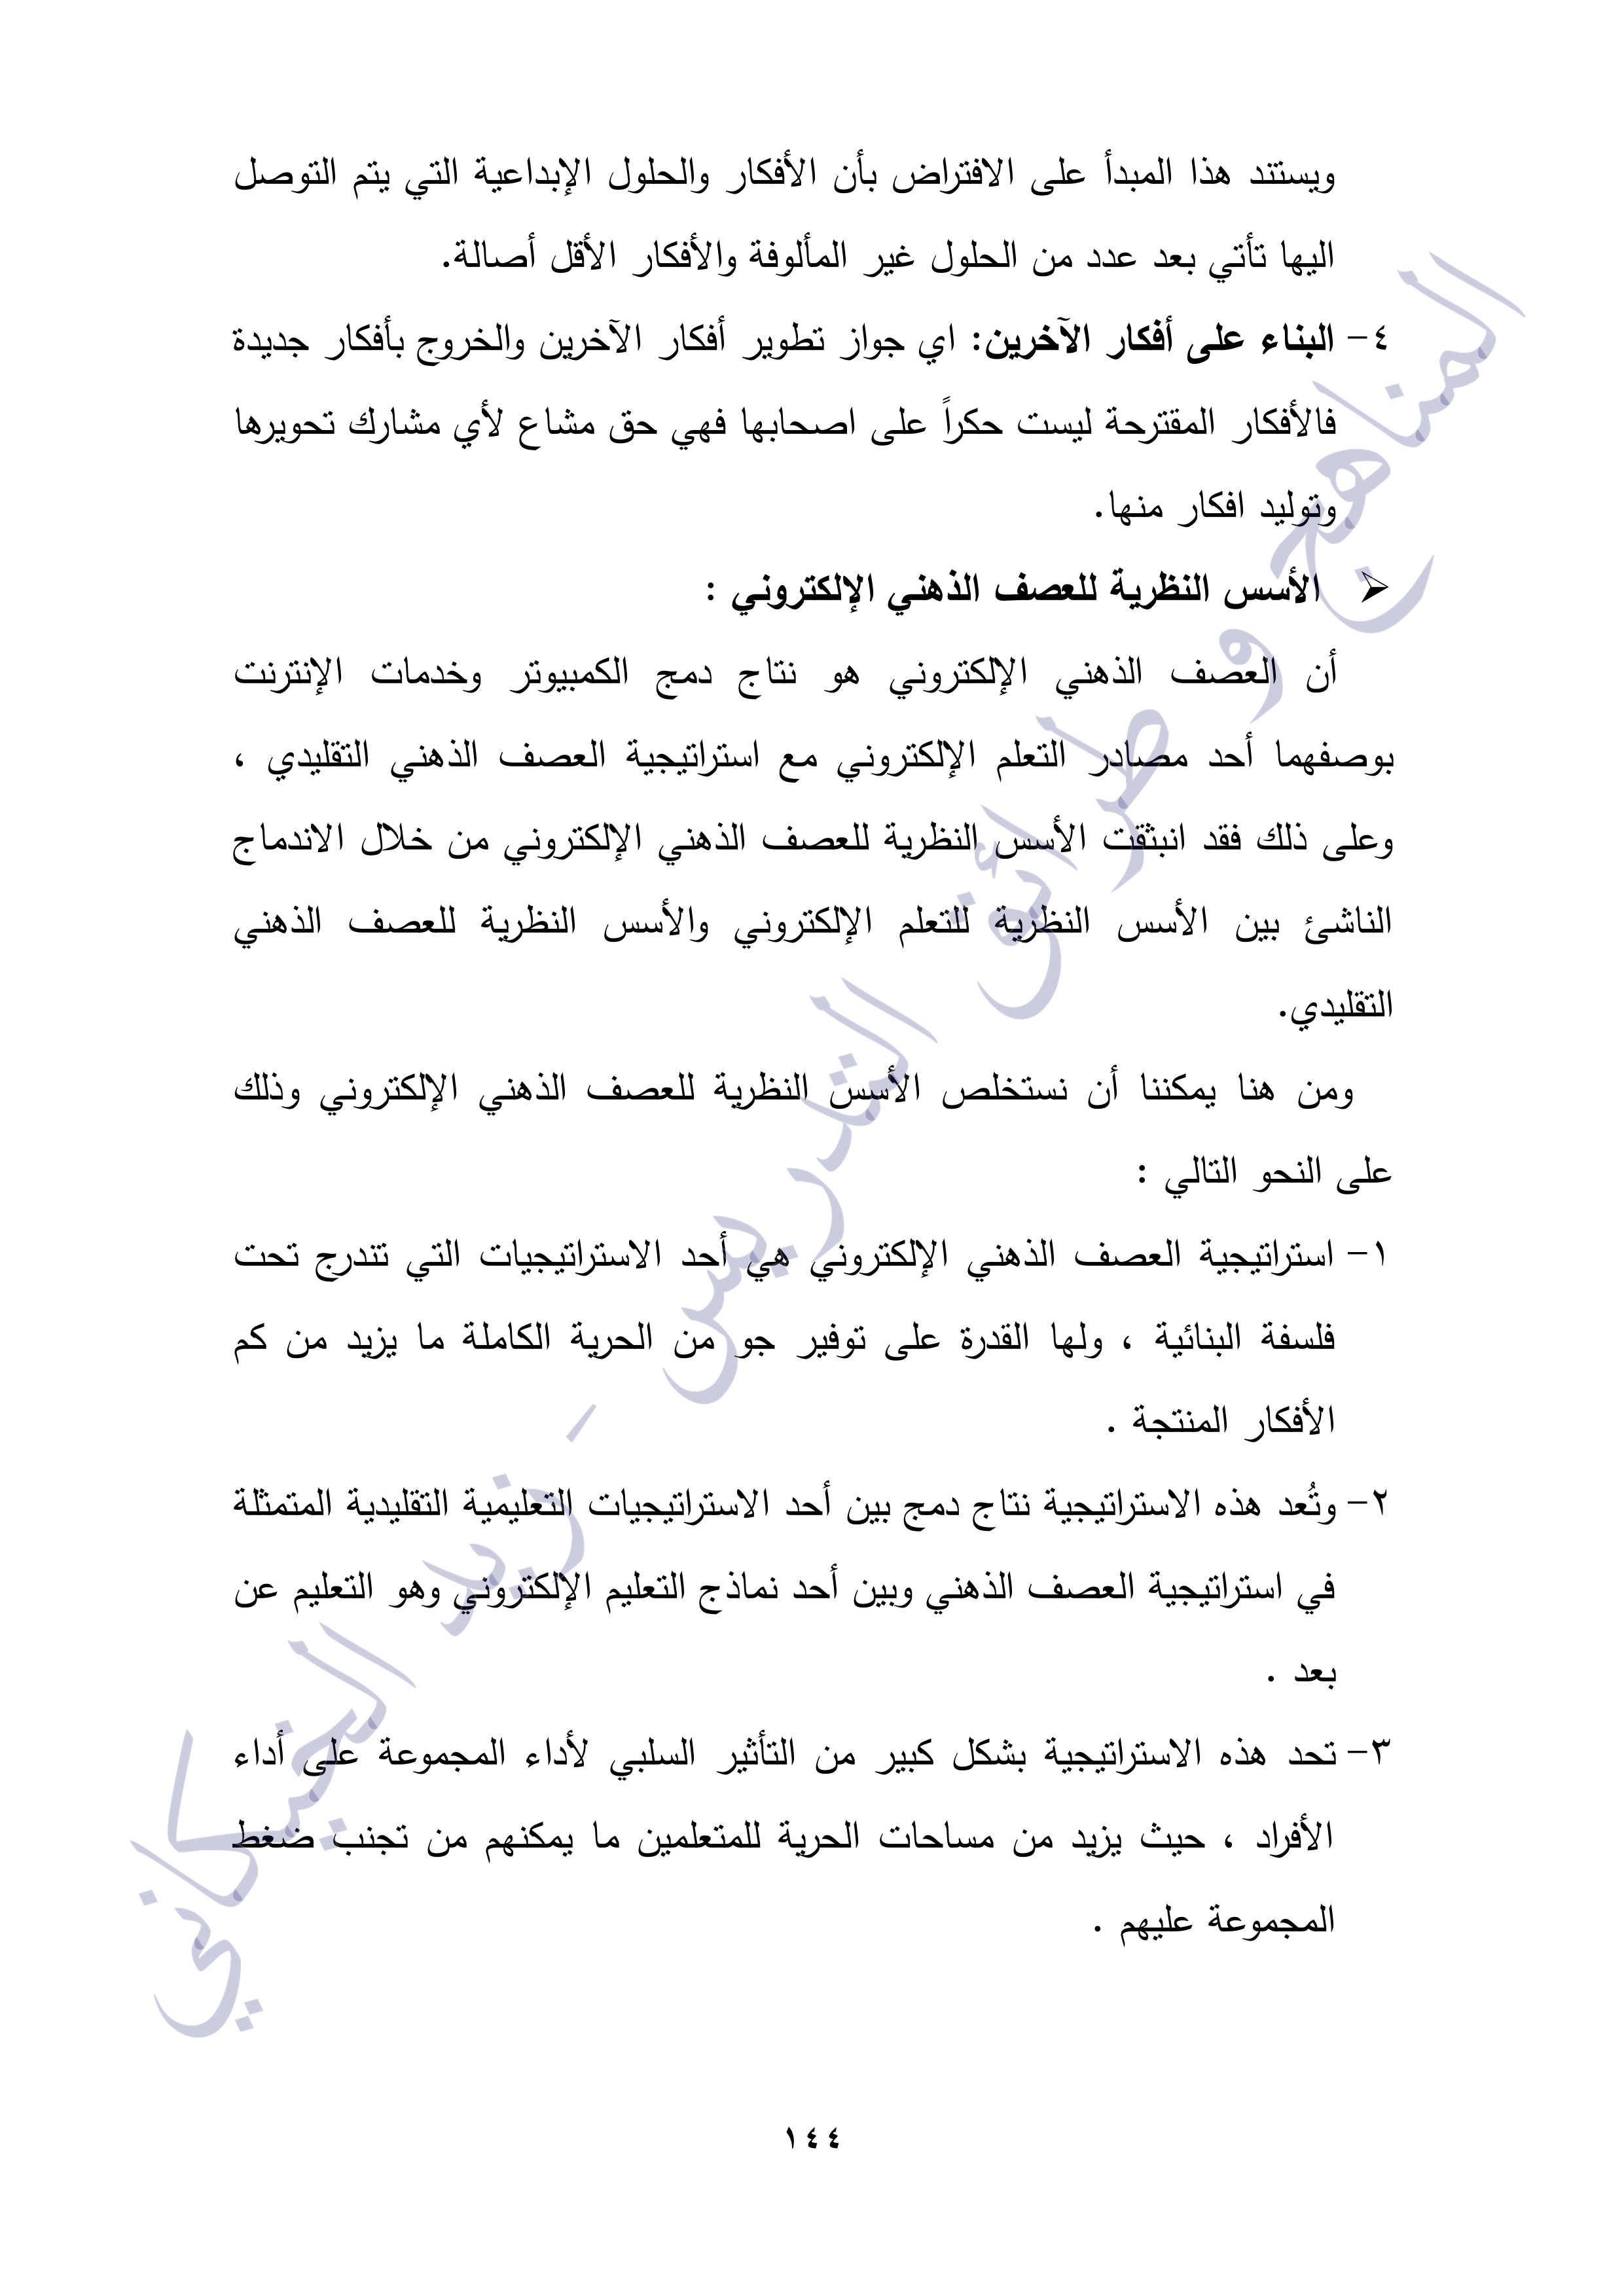 ويستند هذا المبدأ على الافتراض بأن الأفكار والحلول الإبداعية التي يتم التوصل
اليها تأتي بعد عدد من الحلول غير المألوفة والأفكار الأقل أصالة.
٤- البناء على أفكار الآخرين: اي جواز تطوير أفكار الآخرين والخروج بأفكار جديدة
فالأفكار المقترحة ليست حكراً على اصحابها فهي حق مشاع لأي مشارك تحويرها
وتوليد افكار منها.
⮚ الأسس النظرية للعصف الذهني الإلكتروني :
أن العصف الذهني الإلكتروني هو نتاج دمج الكمبيوتر وخدمات الإنترنت
بوصفهما أحد مصادر التعلم الإلكتروني مع استراتيجية العصف الذهني التقليدي ،
وعلى ذلك فقد انبثقت الأسس النظرية للعصف الذهني الإلكتروني من خلال الاندماج
الناشئ بين الأسس النظرية للتعلم الإلكتروني والأسس النظرية للعصف الذهني
التقليدي.
ومن هنا يمكننا أن نستخلص الأسس النظرية للعصف الذهني الإلكتروني وذلك
على النحو التالي :
١- استراتيجية العصف الذهني الإلكتروني هي أحد الاستراتيجيات التي تتدرج تحت
فلسفة البنائية ، ولها القدرة على توفير جو من الحرية الكاملة ما يزيد من كم
الأفكار المنتجة .
٢- وتُعد هذه الاستراتيجية نتاج دمج بين أحد الاستراتيجيات التعليمية التقليدية المتمثلة
في استراتيجية العصف الذهني وبين أحد نماذج التعليم الإلكتروني وهو التعليم عن
بعد .
٣- تحد هذه الاستراتيجية بشكل كبير من التأثير السلبي لأداء المجموعة على أداء
الأفراد ، حيث يزيد من مساحات الحرية للمتعلمين ما يمكنهم من تجنب ضغط
المجموعة عليهم .
المناهج و طرائق التدريس - زيد الخيكاني
١٤٤